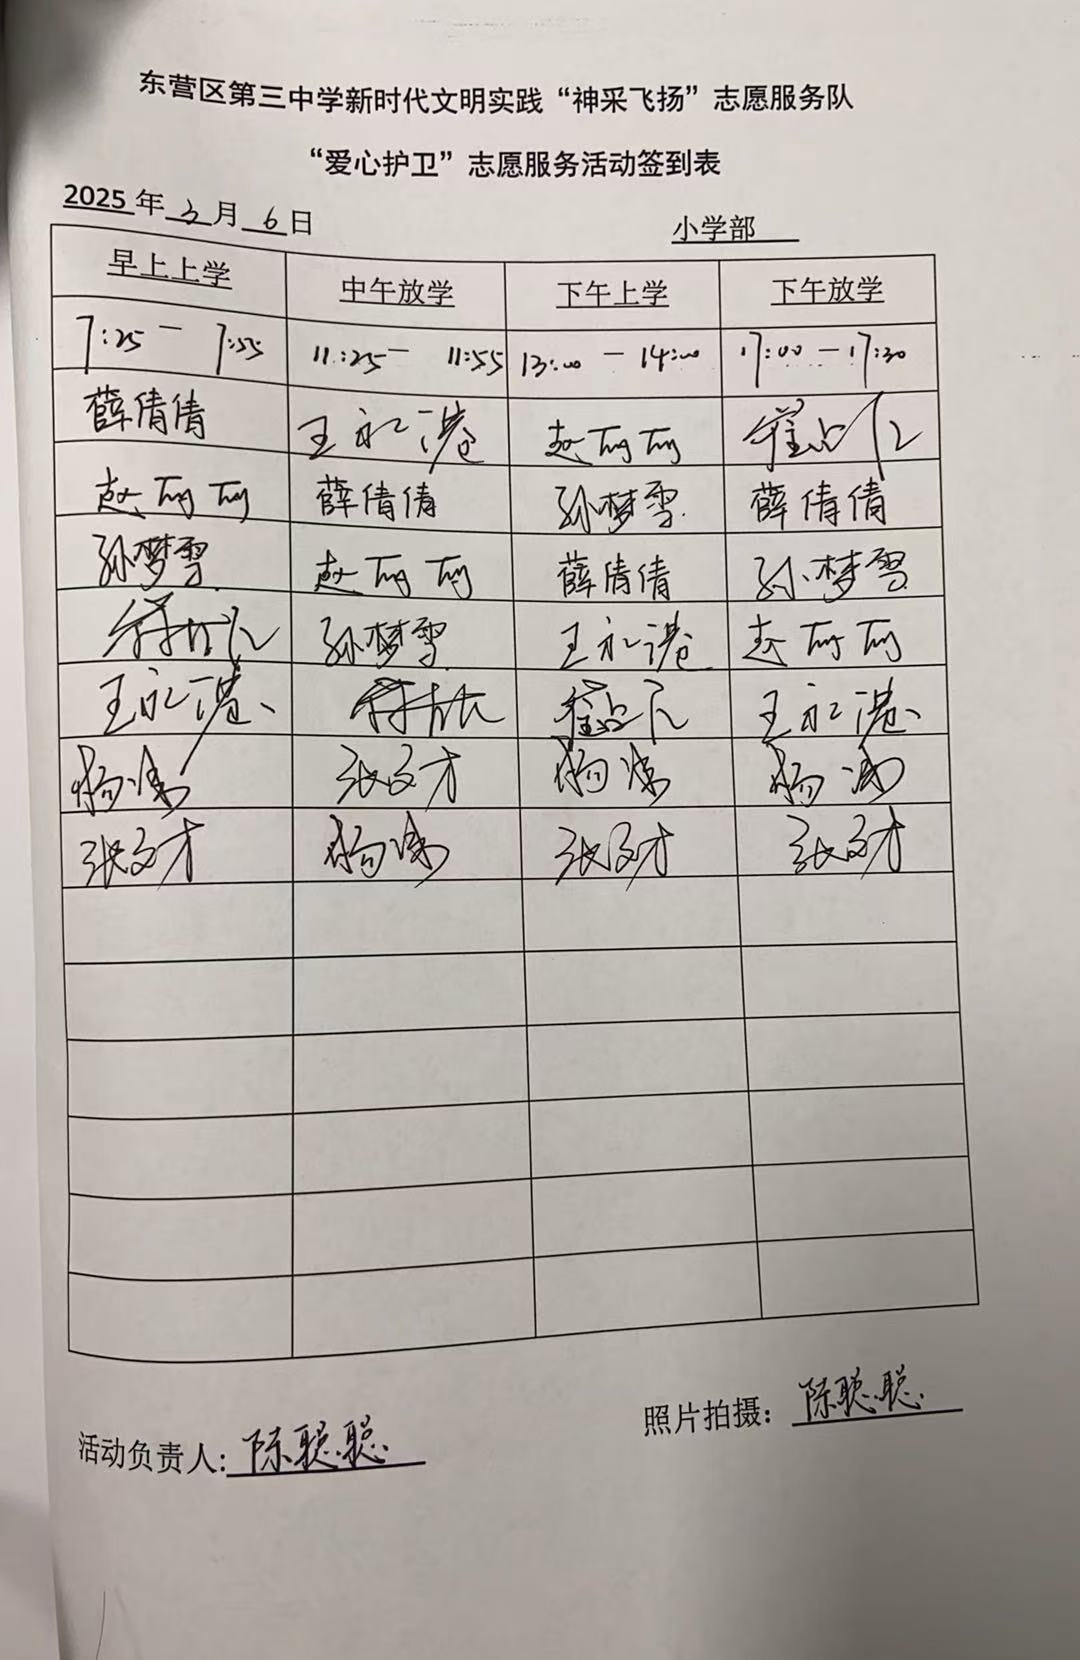 东营区第三中学新时代文明实践“神采飞扬”志愿服务队
“爱心护卫”志愿服务活动签到表
2025年3月6日
小学部
早上上学 中午放学 下午上学 下午放学
7:25一 7:55 11:25一 11:55 13:00一14:00 17:00一17:30
薛倩倩 王永港 赵丽丽
赵丽丽 薛倩倩 孙梦雪 薛倩倩
孙梦雪 赵丽丽 薛倩倩 孙梦雪
孙梦雪 王永港 赵丽丽
王永港 王永港
杨 张文才 杨 杨
张文才 杨 张文才 张文才
照片拍摄：陈聪聪
活动负责人:陈聪聪